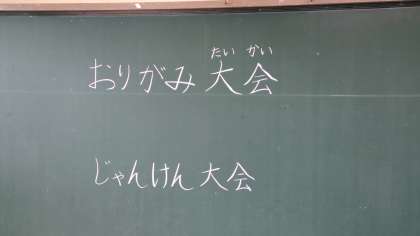 たい かい
おりがみ 大会
じゃんけん 大会